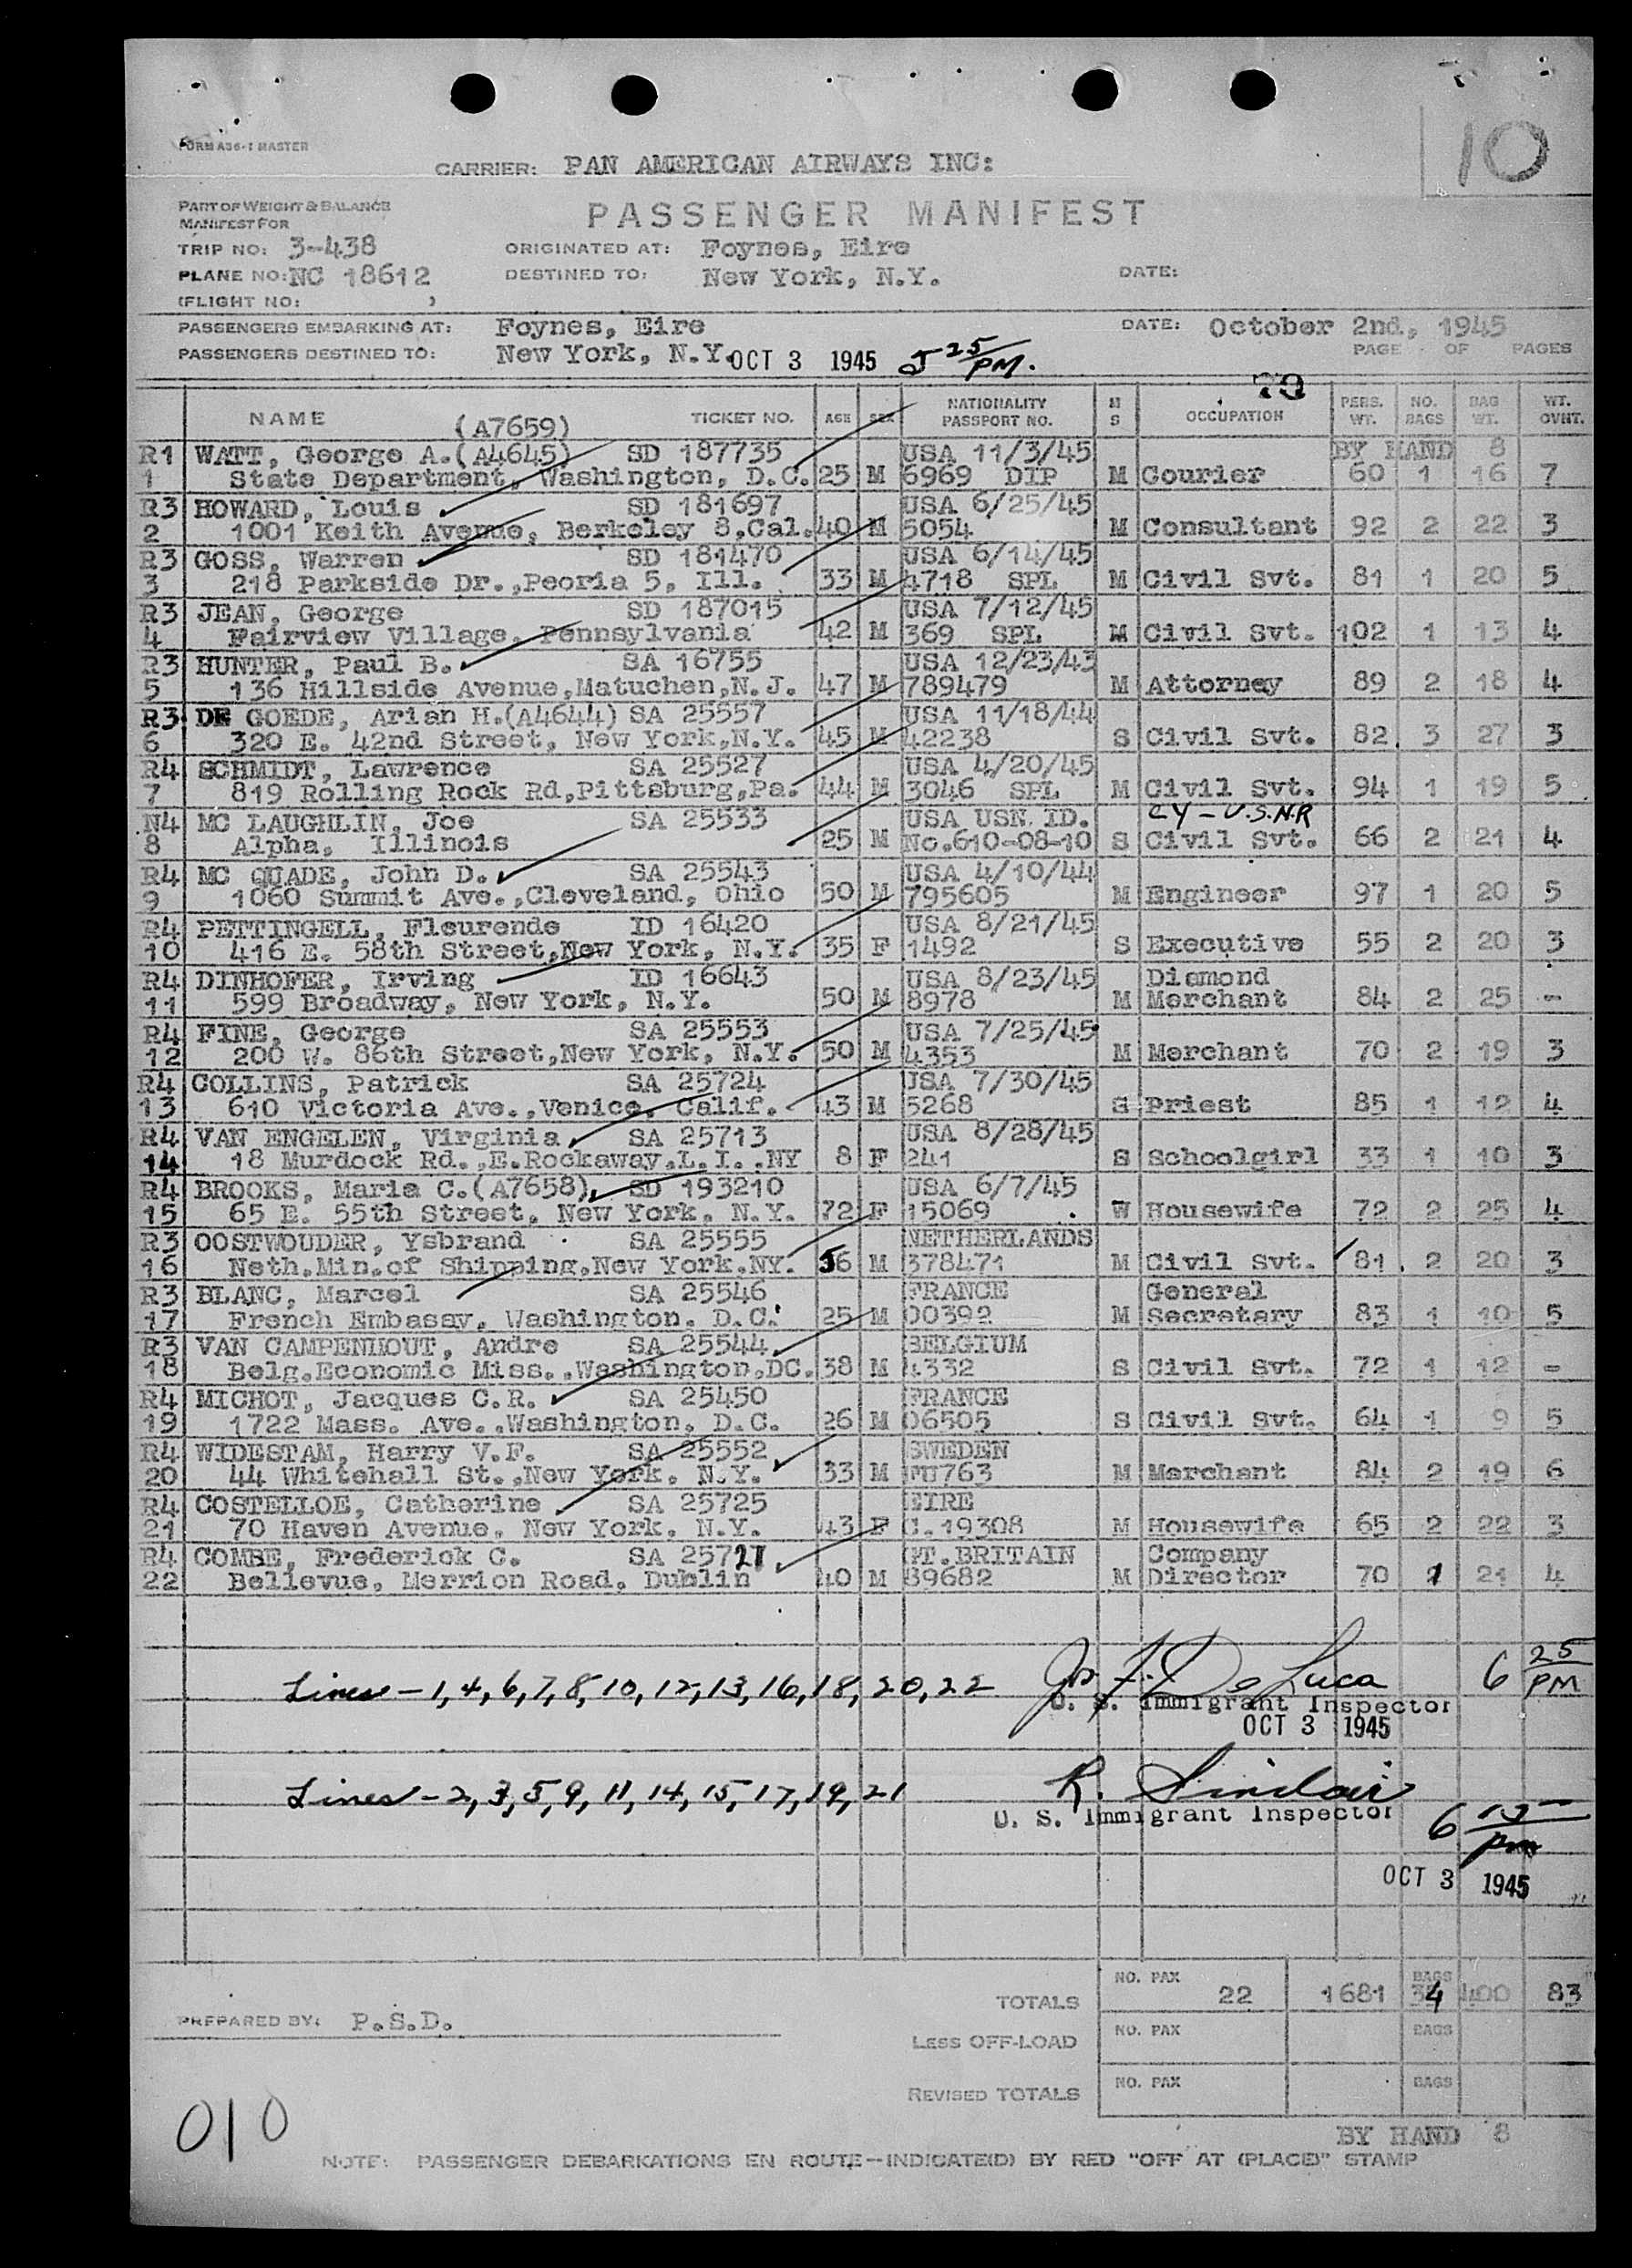 10
FORM A36-1 MASTER
CARRIER: PAN AMERICAN AIRWAYS INC:
PART OF WEIGHT & BALANCE
MANIFEST FOR
PASSENGER MANIFEST
TRIP NO: 3-438 ORIGINATED AT: Foynes, Eire
PLANE NO: NC 18612 DESTINED TO: New York, N.Y. DATE:
(FLIGHT NO: )
PASSENGERS EMBARKING AT: Foynes, Eire DATE: October 2nd., 1945
PASSENGERS DESTINED TO: New York, N.Y. OCT 3 1945 5 25/PM. PAGE OF PAGES
NAME TICKET NO. AGE SEX NATIONALITY PASSPORT NO. M S OCCUPATION PERS. WT. NO. BAGS BAG WT. WT. OVNT.
(A7659)
R1 WATT, George A.(A4645) SD 187735 USA 11/3/45 BY HAND 8
1 State Department, Washington, D.C. 25 M 6969 DIP M Courier 60 1 16 7
R3 HOWARD, Louis SD 181697 USA 6/25/45
2 1001 Keith Avenue, Berkeley 8,Cal. 40 M 5054 M Consultant 92 2 22 3
R3 GOSS, Warren SD 181470 USA 6/14/45
3 218 Parkside Dr.,Peoria 5, Ill. 33 M 4718 SPL M Civil Svt. 81 1 20 5
R3 JEAN, George SD 187015 USA 7/12/45
4 Fairview Village, Pennsylvania 42 M 369 SPL M Civil Svt. 102 1 13 4
R3 HUNTER, Paul B. SA 16755 USA 12/23/43
5 136 Hillside Avenue,Matuchen,N.J. 47 M 789479 M Attorney 89 2 18 4
R3 DE GOEDE, Arian H.(A4644) SA 25557 USA 11/18/44
6 320 E. 42nd Street, New York,N.Y. 45 M 42238 S Civil Svt. 82 3 27 3
R4 SCHMIDT, Lawrence SA 25527 USA 4/20/45
7 819 Rolling Rock Rd,Pittsburg,Pa. 44 M 3046 SPL M Civil Svt. 94 1 19 5
N4 MC LAUGHLIN, Joe SA 25533 USA USN. ID. CY - U.S.N.R
8 Alpha, Illinois 25 M No.610-08-10 S Civil Svt. 66 2 21 4
R4 MC QUADE, John D. SA 25543 USA 4/10/44
9 1060 Summit Ave.,Cleveland, Ohio 50 M 795605 M Engineer 97 1 20 5
R4 PETTINGELL, Fleurende ID 16420 USA 8/21/45
10 416 E. 58th Street,New York, N.Y. 35 F 1492 S Executive 55 2 20 3
R4 DINHOFER, Irving ID 16643 USA 8/23/45 Diamond
11 599 Broadway, New York, N.Y. 50 M 8978 M Merchant 84 2 25 -
R4 FINE, George SA 25553 USA 7/25/45
12 200 W. 86th Street,New York, N.Y. 50 M 4353 M Merchant 70 2 19 3
R4 COLLINS, Patrick SA 25724 USA 7/30/45
13 610 Victoria Ave.,Venice, Calif. 43 M 5268 S Priest 85 1 12 4
R4 VAN ENGELEN, Virginia SA 25713 USA 8/28/45
14 18 Murdock Rd.,E.Rockaway,L.I.,NY 8 F 241 S Schoolgirl 33 1 10 3
R4 BROOKS, Maria C.(A7658) SD 193210 USA 6/7/45
15 65 E. 55th Street, New York, N.Y. 72 F 15069 W Housewife 72 2 25 4
R3 OOSTWOUDER, Ysbrand SA 25555 NETHERLANDS
16 Neth.Min.of Shipping,New York.NY. 56 M 378471 M Civil Svt. 81 2 20 3
R3 BLANC, Marcel SA 25546 FRANCE General
17 French Embasay, Washington, D.C. 25 M 00392 M Secretary 83 1 10 5
R3 VAN CAMPENHOUT, Andre SA 25544 BELGIUM
18 Belg.Economic Miss.,Washington,DC. 38 M 4332 S Civil Svt. 72 1 12 -
R4 MICHOT, Jacques C.R. SA 25450 FRANCE
19 1722 Mass. Ave.,Washington, D.C. 26 M 06505 S Civil Svt. 64 1 9 5
R4 WIDESTAM, Harry V.F. SA 25552 SWEDEN
20 44 Whitehall St.,New York, N.Y. 33 M FU763 M Merchant 84 2 19 6
R4 COSTELLOE, Catherine SA 25725 EIRE
21 70 Haven Avenue, New York, N.Y. 43 F C.19308 M Housewife 65 2 22 3
R4 COMBE, Frederick C. SA 25727 GT.BRITAIN Company
22 Bellevue, Merrion Road, Dublin 40 M 89682 M Director 70 1 21 4
Lines - 1, 4, 6, 7, 8, 10, 12, 13, 16, 18, 20, 22 Jos. F. De Luca 6 25/PM
U. S. Immigrant Inspector
OCT 3 1945
Lines - 2, 3, 5, 9, 11, 14, 15, 17, 19, 21 R. Sinclair
U. S. Immigrant Inspector 6 15/pm
OCT 3 1945
TOTALS NO. PAX 22 1681 BAGS 34 400 83
PREPARED BY: P.S.D.
LESS OFF-LOAD NO. PAX BAGS
REVISED TOTALS NO. PAX BAGS
010
BY HAND 8
NOTE: PASSENGER DEBARKATIONS EN ROUTE—INDICATE(D) BY RED "OFF AT (PLACE)" STAMP